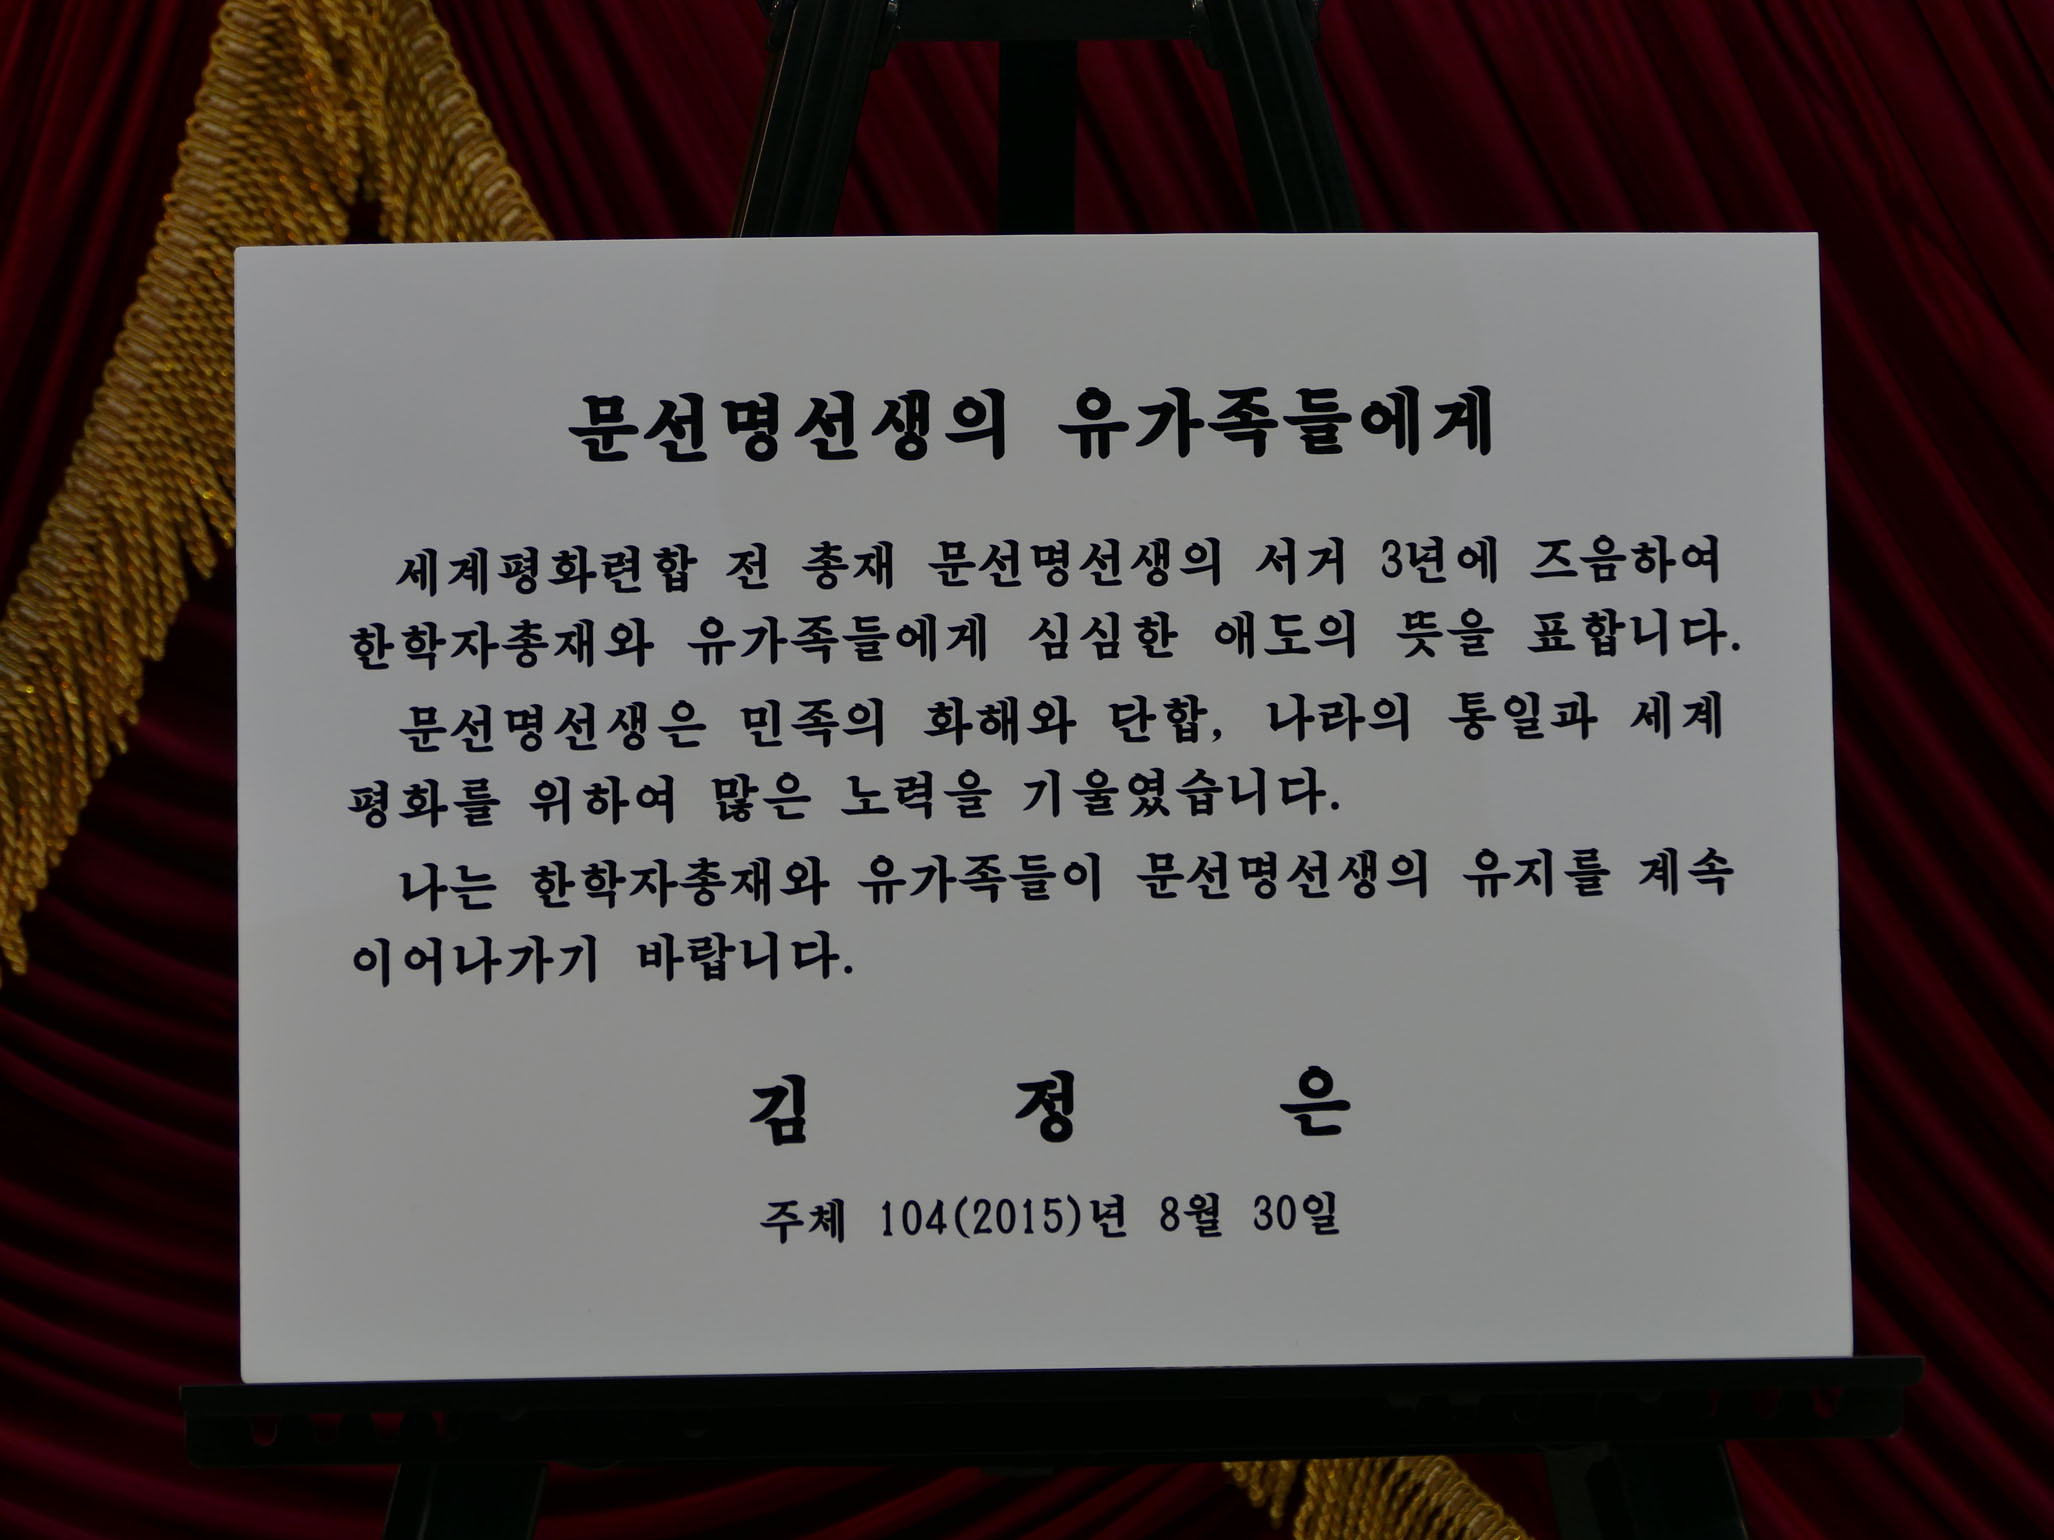 문선명선생의 유가족들에게
세계평화련합 전 총재 문선명선생의 서거 3년에 즈음하여
한학자총재와 유가족들에게 심심한 애도의 뜻을 표합니다.
문선명선생은 민족의 화해와 단합, 나라의 통일과 세계
평화를 위하여 많은 노력을 기울였습니다.
나는 한학자총재와 유가족들이 문선명선생의 유지를 계속
이어나가기 바랍니다.
김 정 은
주체 104(2015)년 8월 30일